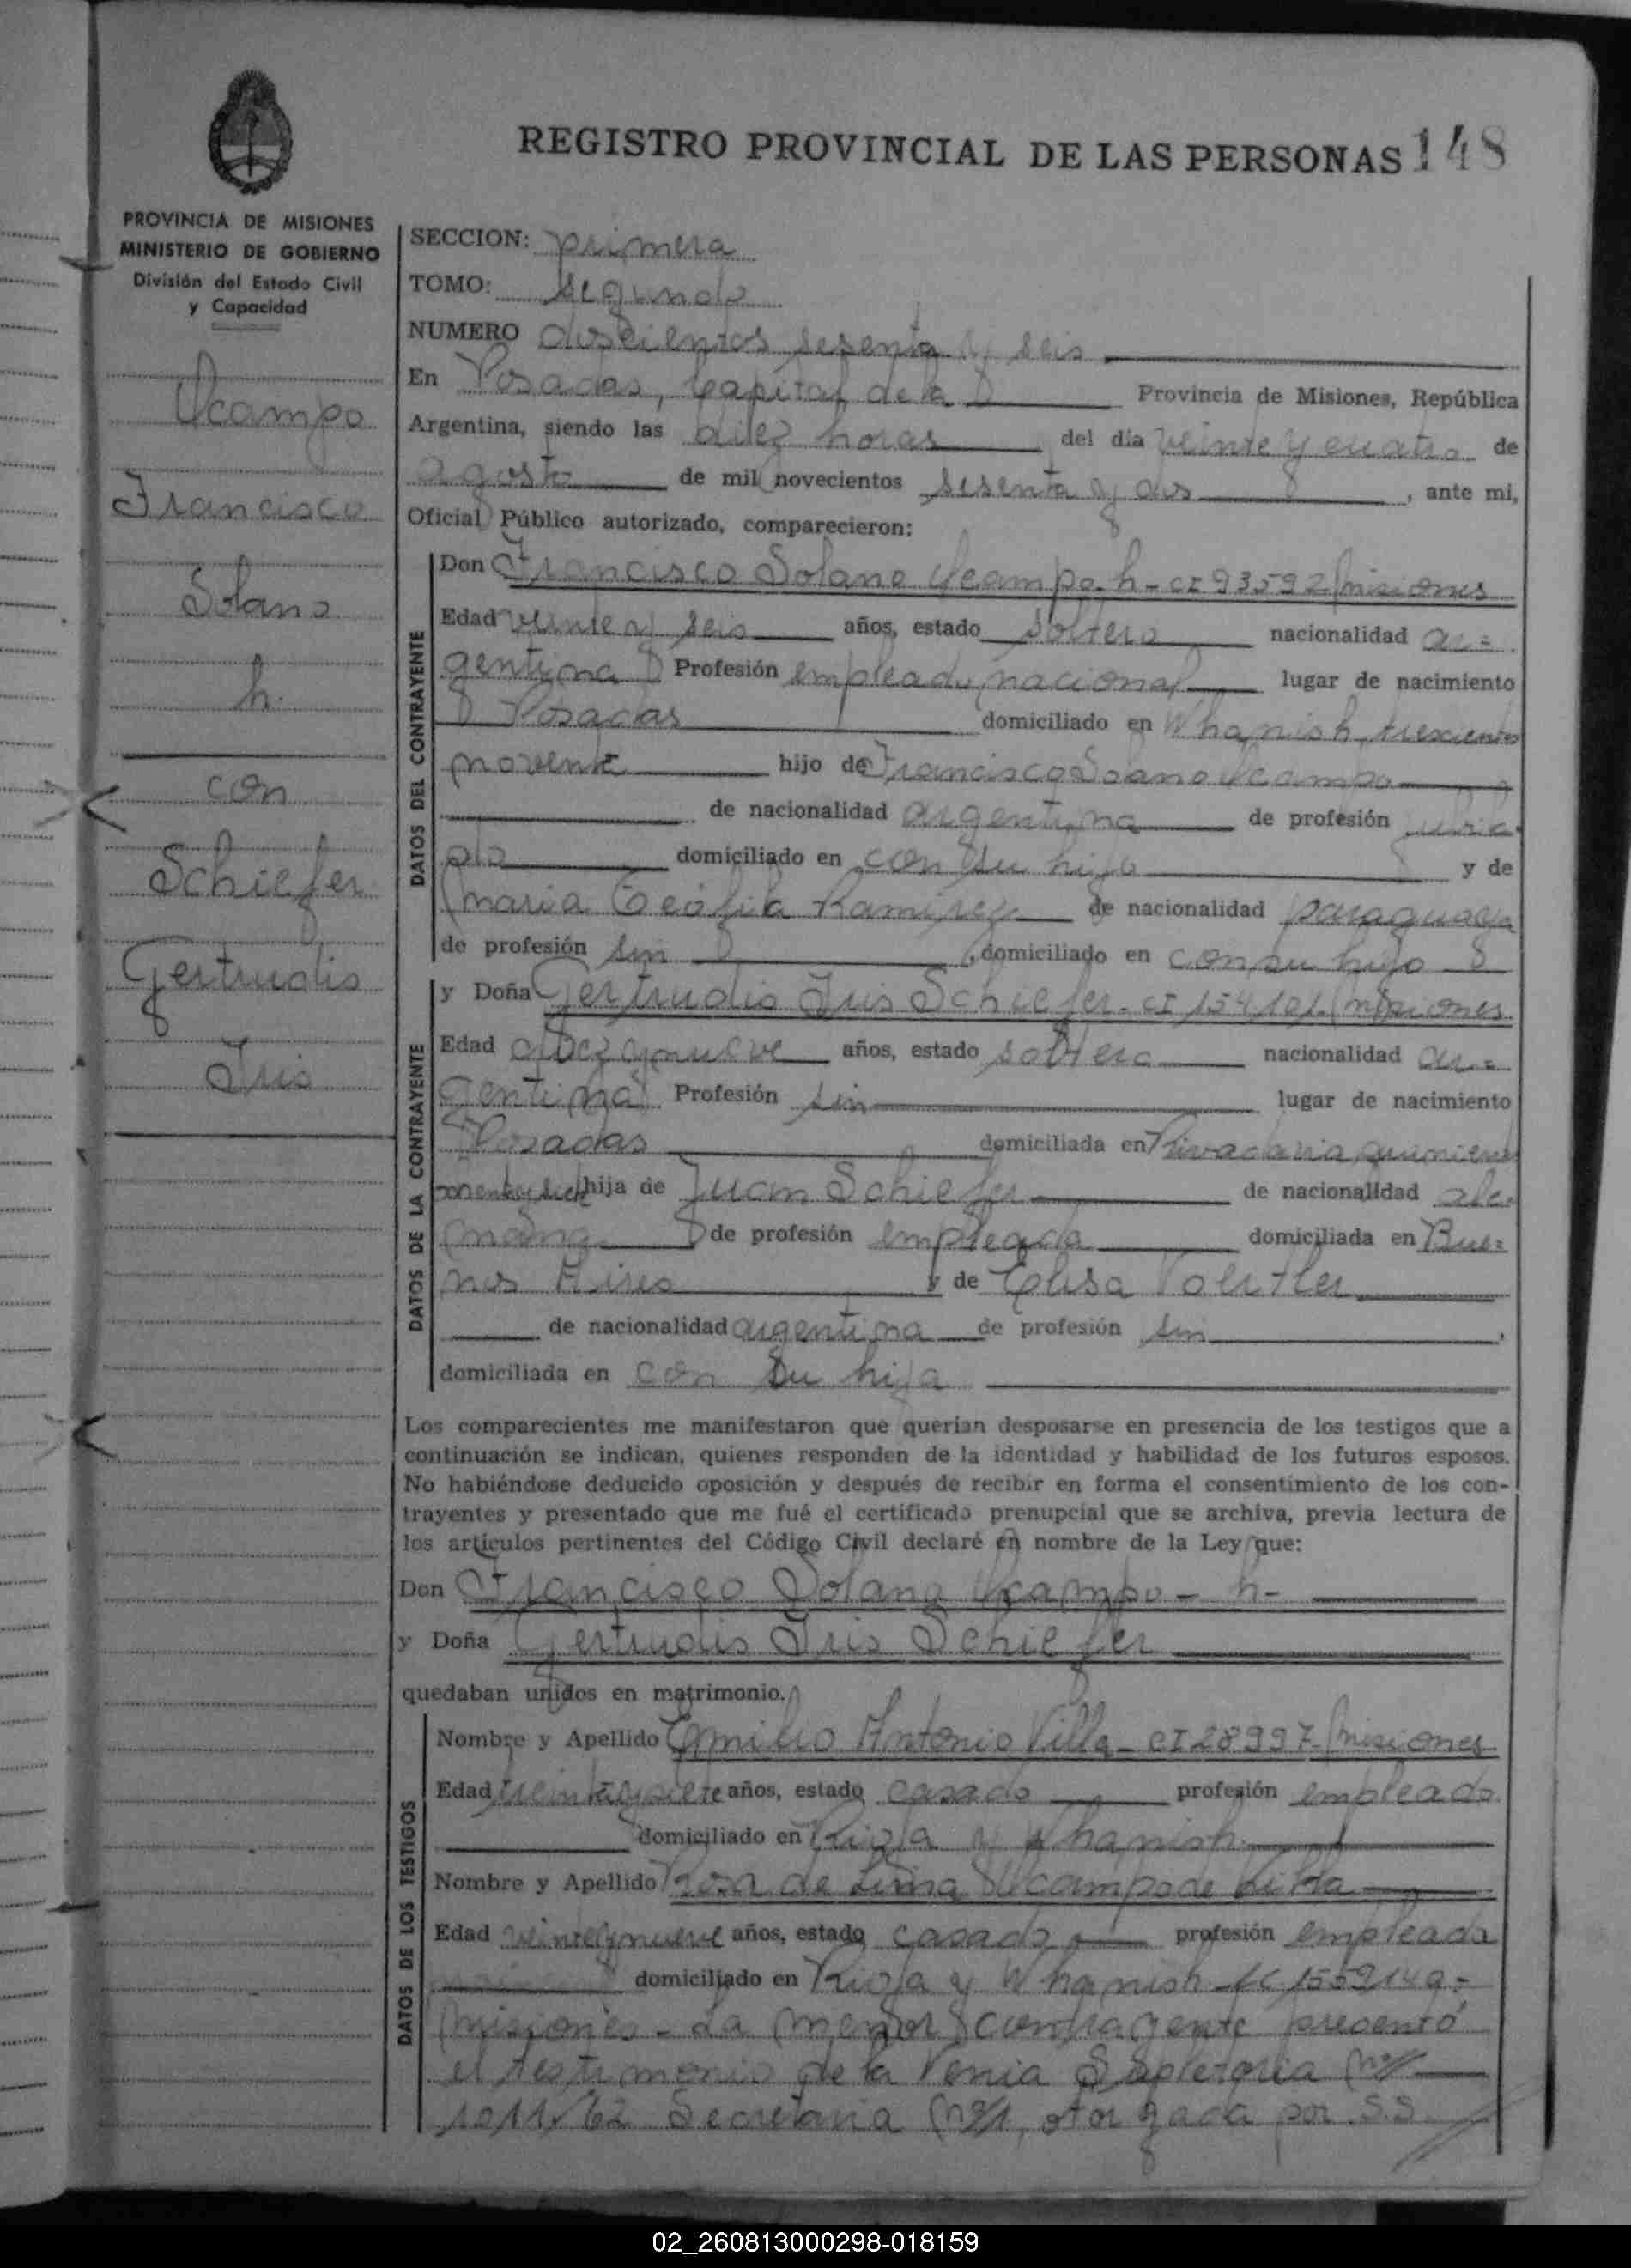 REGISTRO PROVINCIAL DE LAS PERSONAS 148
PROVINCIA DE MISIONES
MINISTERIO DE GOBIERNO
División del Estado Civil
y Capacidad
Ocampo
Francisco
Solano
h.
con
Schiefer
Gertrudis
Iris
SECCION: primera
TOMO: segundo
NUMERO doscientos sesenta y seis
En Posadas, Capital de la Provincia de Misiones, República
Argentina, siendo las diez horas del día veinte y cuatro de
agosto de mil novecientos sesenta y dos, ante mi,
Oficial Público autorizado, comparecieron:
DATOS DEL CONTRAYENTE
Don Francisco Solano Ocampo-h-CI 93592 Misiones
Edad veinte y seis años, estado soltero nacionalidad ar=
gentina Profesión empleado nacional lugar de nacimiento
Posadas domiciliado en Whanish trescientos
noventa hijo de Francisco Solano Ocampo
de nacionalidad argentina de profesión jubila
do domiciliado en con su hijo y de
Maria Teófila Ramirez de nacionalidad paraguaya
de profesión sin, domiciliado en con su hijo
DATOS DE LA CONTRAYENTE
y Doña Gertrudis Iris Schiefer-CI 154101-Misiones
Edad diez y nueve años, estado soltera nacionalidad ar=
gentina Profesión sin lugar de nacimiento
Posadas domiciliada en Rivadavia
hija de Juan Schiefer de nacionalidad ale
mana de profesión empleada domiciliada en Bue=
nos Aires y de Elisa
de nacionalidad argentina de profesión sin,
domiciliada en con su hija
Los comparecientes me manifestaron que querian desposarse en presencia de los testigos que a
continuación se indican, quienes responden de la identidad y habilidad de los futuros esposos.
No habiéndose deducido oposición y después de recibir en forma el consentimiento de los con-
trayentes y presentado que me fué el certificado prenupcial que se archiva, previa lectura de
los artículos pertinentes del Código Civil declaré en nombre de la Ley que:
Don Francisco Solano Ocampo - h-
y Doña Gertrudis Iris Schiefer
quedaban unidos en matrimonio.
DATOS DE LOS TESTIGOS
Nombre y Apellido Emilio Antonio Villa-CI 28997-Misiones
Edad treinta y siete años, estado casado profesión empleado
domiciliado en Rioja y Whanish
Nombre y Apellido Rosa de Lima Ocampo de Villa
Edad veinte y nueve años, estado casada profesión empleada
domiciliado en Rioja y Whanish-LC 1559149=
Misiones - La menor contrayente presentó
el testimonio de la Venia Supletoria Nº
1011/62 Secretaria Nº1, otorgada por S.S.
02_260813000298-018159